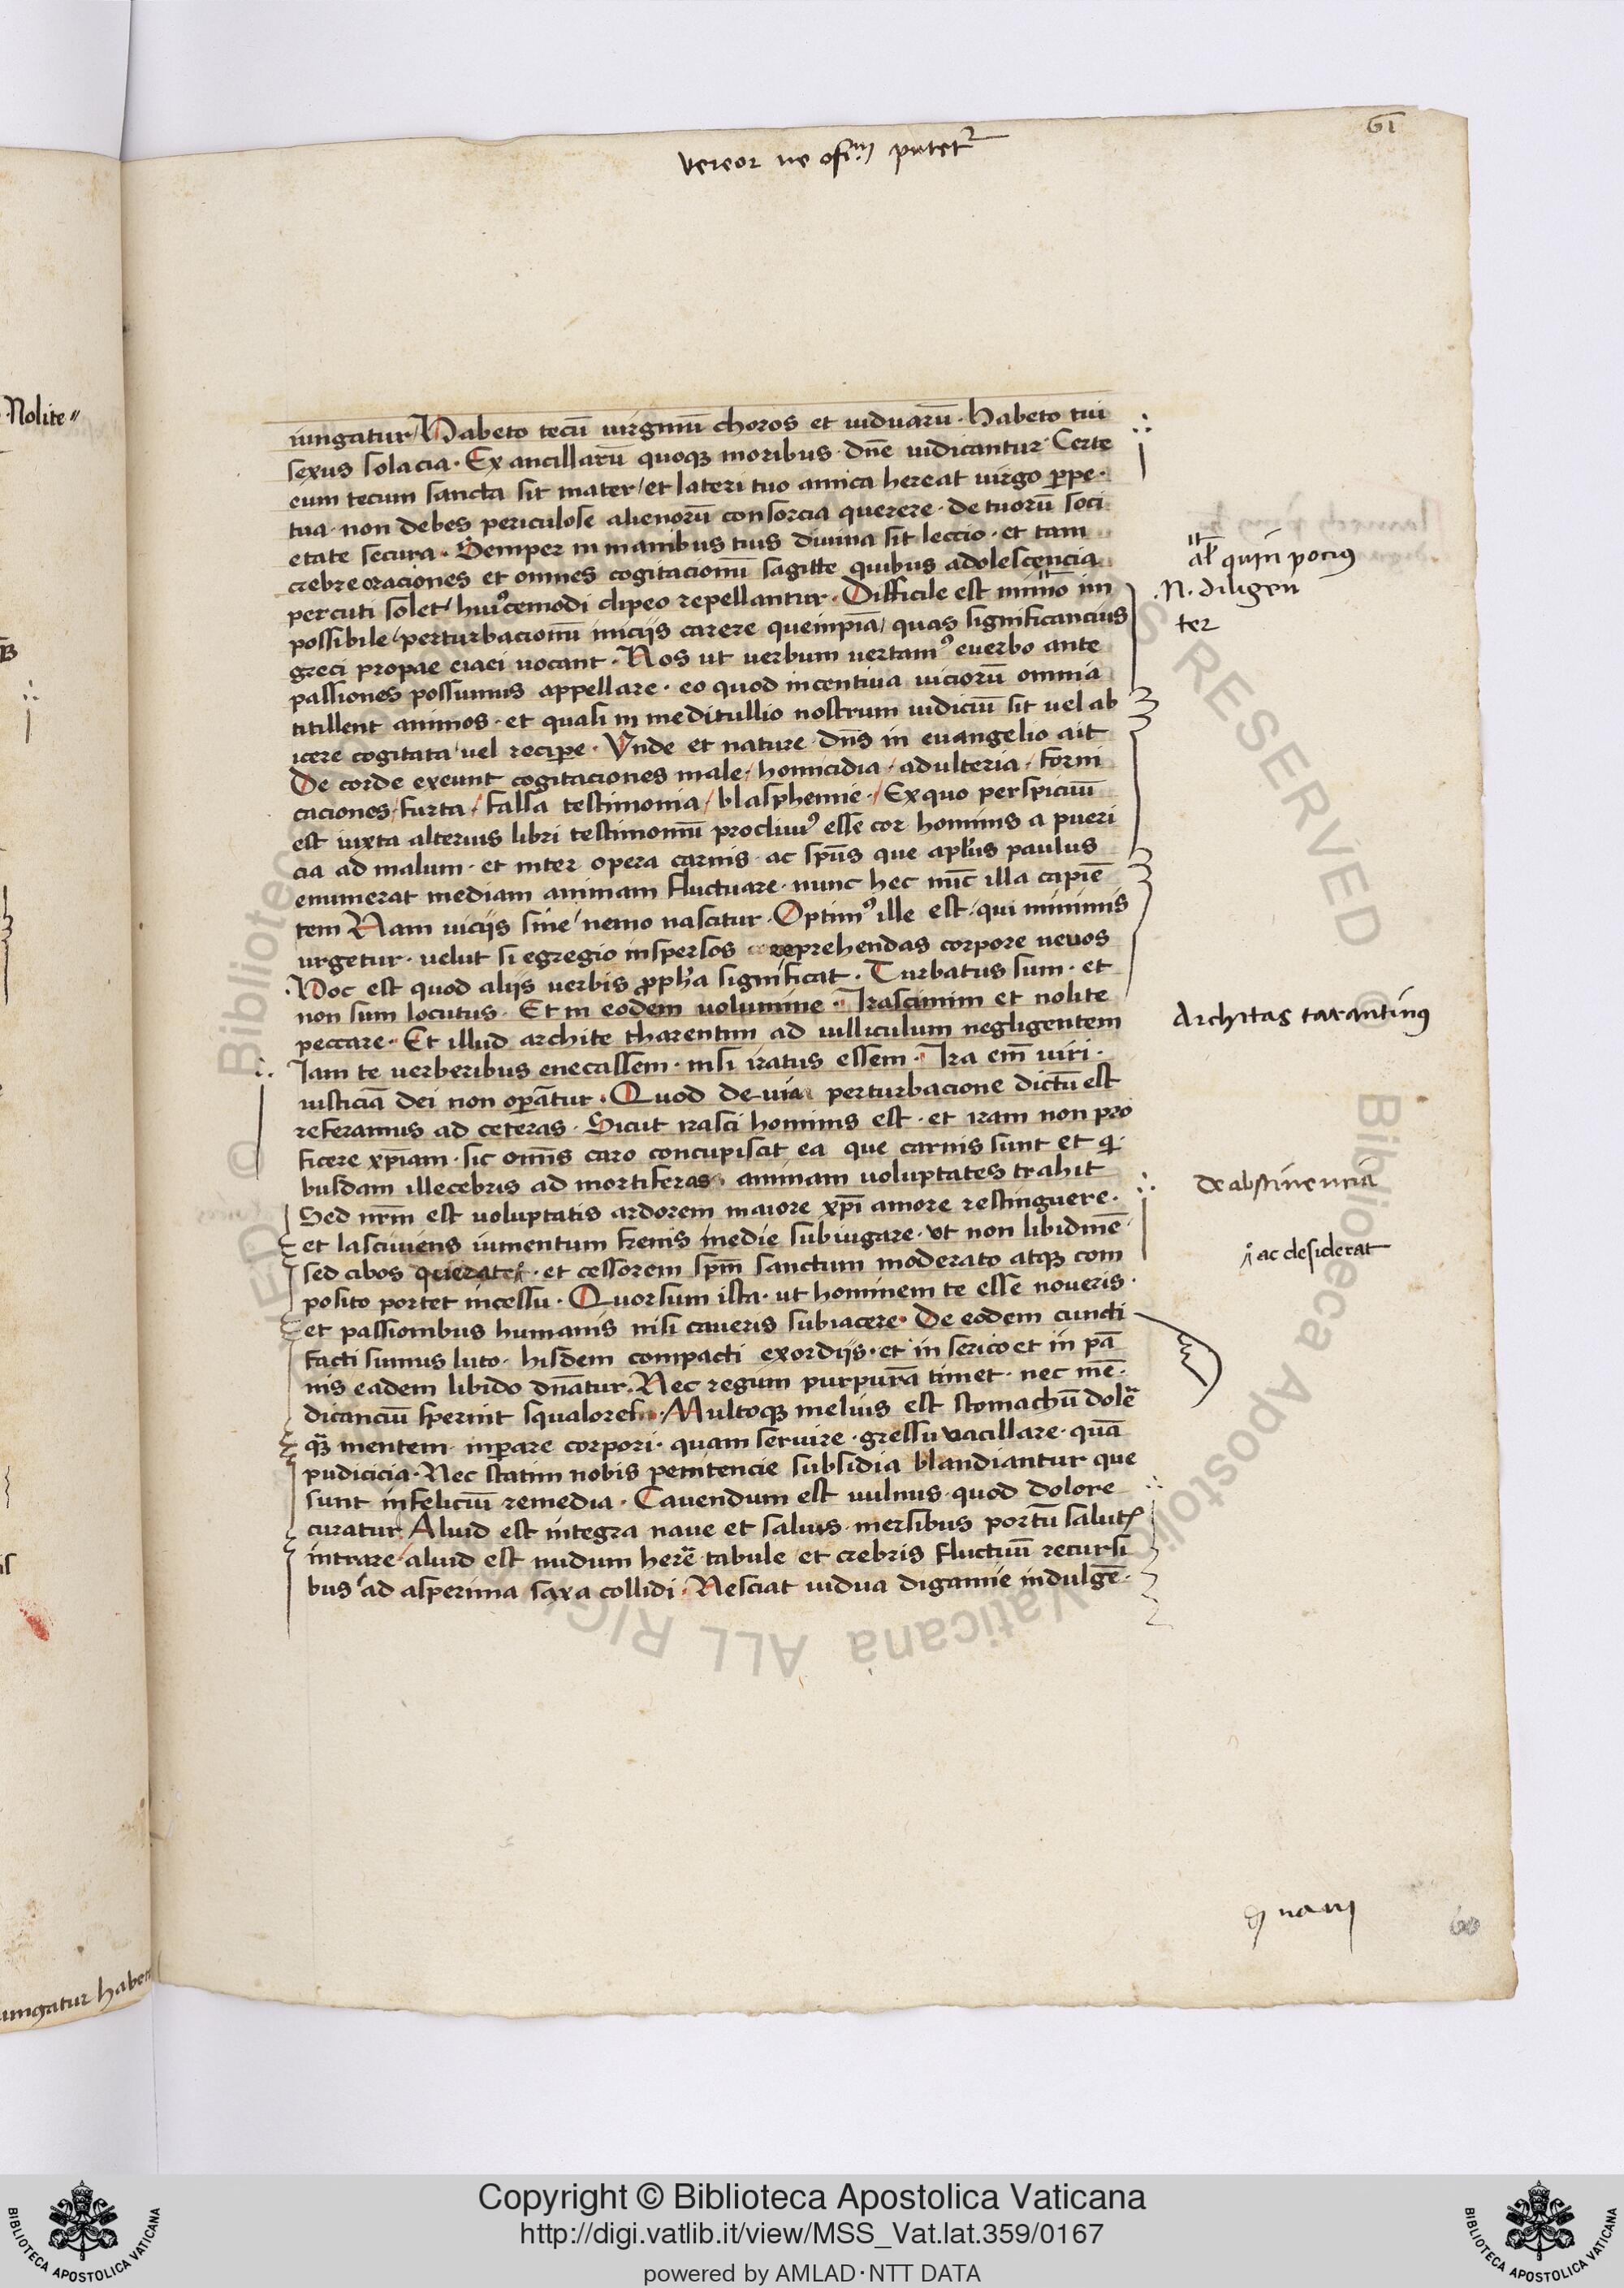 61
vereor ne ofſm putet
Nolite
iungatur / Habeto tecū uirginū choros et uiduarū · habeto tui
sexus solacia · Ex ancillarū quoqꝫ moribus · dn̄e iudicantur · Certe
cum tecum sancta sit mater / et lateri tuo amica hereat uirgo ꝑpe·
tua · non debes periculose alienorū consorcia querere · de tuorū soci
etate secura · Semper in manibus tuis diuina sit leccio · et tam
crebre oraciones et omnes cogitacionū sagitte quibus adolescencia
percuti solet / huiꝰcemodi clipeo repellantur · Difficile est immo im
possibile / perturbacionū iniciis carere quempiā / quas significancius
greci propaeeiaei uocant · Nos ut uerbum uertamꝰ euerbo ante
passiones possumus appellare · eo quod incentiua uiciorū omnia
titillent animos · et quasi in meditullio nostrum iudiciū sit uel ab
icere cogitata / uel recipe · Vnde et nature dn̄s in euangelio ait
De corde exeunt cogitaciones male / homicidia / adulteria / forni
caciones / furta / falsa testimonia / blasphemie · / Ex quo perspicuū
est iuxta alterius libri testimoniū procliuiꝰ esse cor hominis a pueri
cia ad malum · et inter opera carnis · ac sp̄us que apl̄us paulus
enumerat mediam animam fluctuare · nunc hec nūc illa capiē
tem Nam uiciis sine / nemo nascitur · Optimꝰ ille est / qui minimis
urgetur · uelut si egregio inspersos reprehendas corpore neuos
Hoc est quod aliis uerbis ꝓph̄a significat · Turbatus sum · et
non sum locutus · Et in eodem uolumine · Irascimini et nolite
peccare · Et illud archite tharentini ad uilliculum negligentem
Iam te uerberibus enecassem · nisi iratus essem · Ira em̄ uiri ·
iusticiā dei non oꝑātur · Quod de uia perturbacione dictū est
referamus ad ceteras · Sicut irasci hominis est · et iram non pro
ficere xp̄iam · sic om̄s caro concupiscit ea que carnis sunt et qi
busdam illecebris ad mortiferas animam uoluptates trahit
Sed nr̄m est uoluptatis ardorem maiore xp̄i amore restinguere ·
et lasciuiens iumentum frenis inedie subiugare · ut non libidinē
sed cibos querat · et cessorem sp̄m sanctum moderato atqꝫ com
posito portet incessu · Quorsum ista · ut hominem te esse noueris ·
et passionibus humanis nisi caueris subiacere · De eodem cuncti
facti sumus luto · hisdem compacti exordiis · et in serico et in pā
nis eadem libido dn̄atur · Nec regum purpurā timet · nec mē·
dicanciū spernit squalores · Multoqꝫ melius est stomachū dolē
qꝫ mentem · inꝑare corpori · quam seruire · gressu vacillare · quā
pudicicia · Nec statim nobis penitencie subsidia blandiantur que
sunt infeliciū remedia · Cauendum est uulnus · quod dolore
curatur · Aliud est integra naue et saluis mersibus portū saluts
intrare / aliud est nudum herē tabule et crebris fluctuū recursi
bus / ad asperima saxa collidi · Nesciat uidua digamie indulgē·
al̄ quin pocius
N. diligen
ter
Architas tarantinus
de abstinencia
ac desiderat
60
ungatur haber
Copyright © Biblioteca Apostolica Vaticana
http://digi.vatlib.it/view/MSS_Vat.lat.359/0167
powered by AMLAD·NTT DATA
BIBLIOTECA APOSTOLICA VATICANA
BIBLIOTECA APOSTOLICA VATICANA